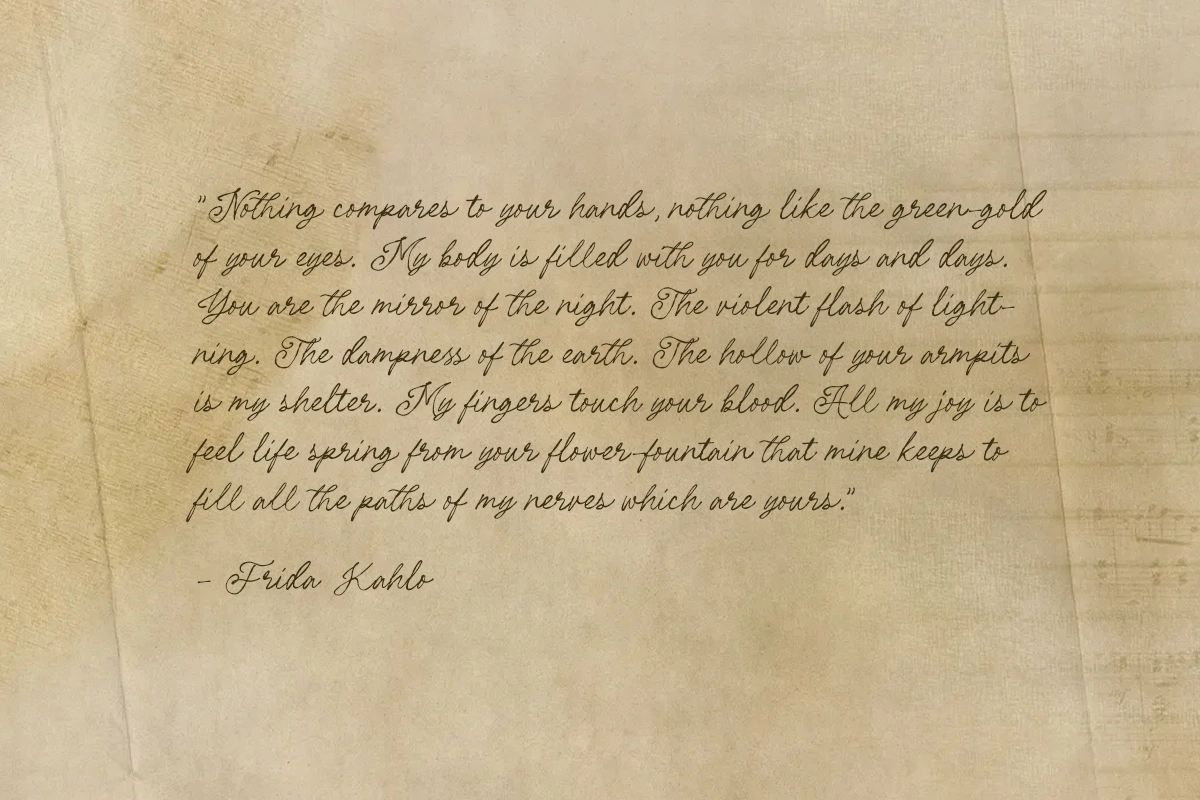 "Nothing compares to your hands, nothing like the green-gold
of your eyes. My body is filled with you for days and days.
You are the mirror of the night. The violent flash of light-
ning. The dampness of the earth. The hollow of your armpits
is my shelter. My fingers touch your blood. All my joy is to
feel life spring from your flower-fountain that mine keeps to
fill all the paths of my nerves which are yours."
- Frida Kahlo